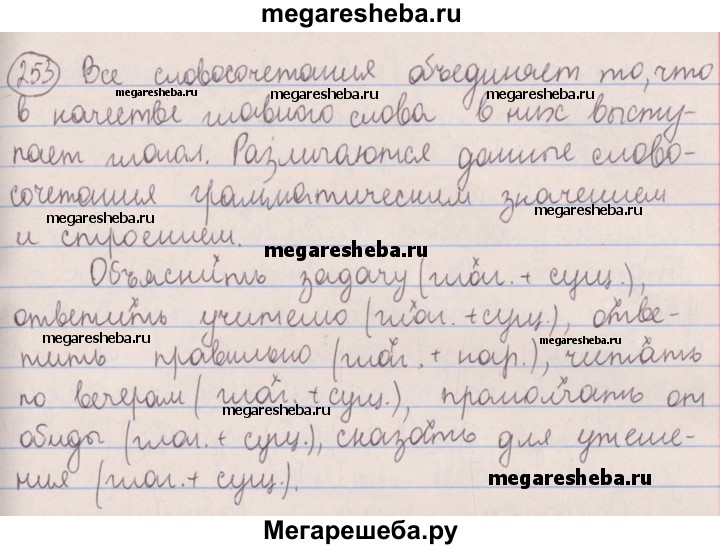 megaresheba.ru
253 Все словосочетания объединяет то, что
megaresheba.ru megaresheba.ru megaresheba.ru
в качестве главного слова в них высту-
пает глагол. Различаются данные слово-
сочетания грамматическим значением
megaresheba.ru megaresheba.ru
и строением.
megaresheba.ru
Объяснить задачу (глаг. + сущ.),
ответить учителю (глаг. + сущ.), отве-
тить правильно (глаг. + нар.), читать
по вечерам (глаг. + сущ.), промолчать от
megaresheba.ru
обиды (глаг. + сущ.), сказать для утеше-
ния (глаг. + сущ.).
megaresheba.ru
Мегарешеба.ру